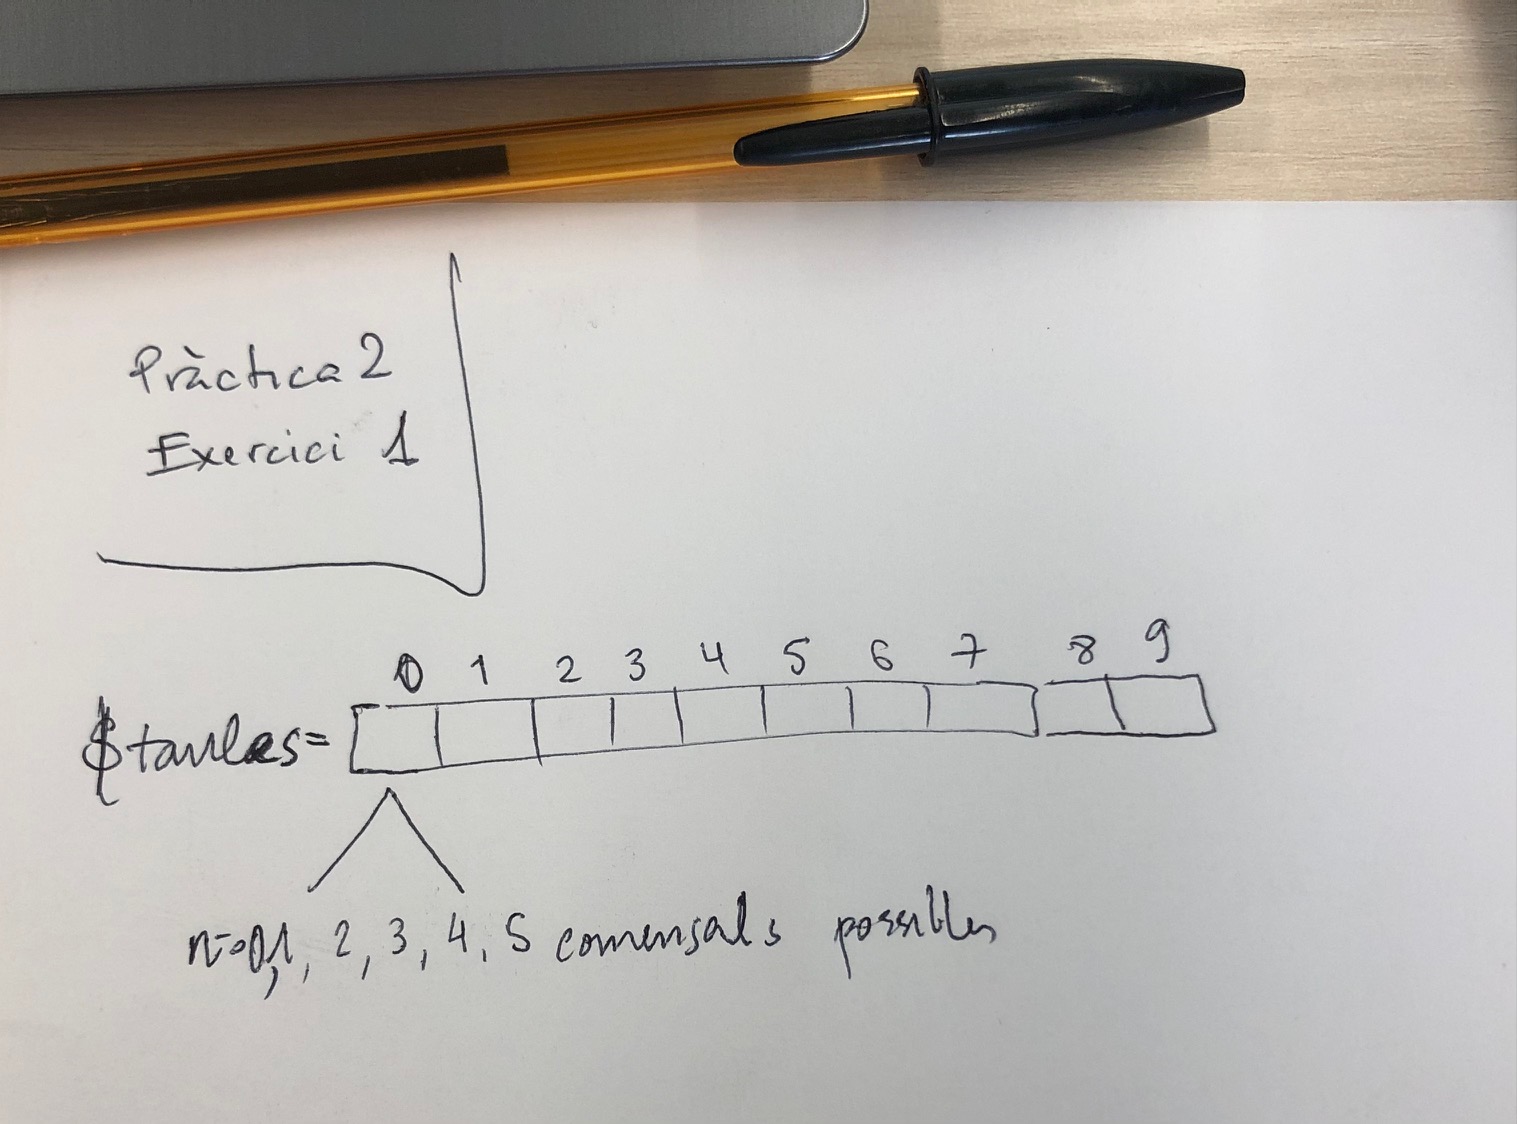 Pràctica 2
Exercici 1
0 1 2 3 4 5 6 7 8 9
$taules=
n=0,1, 2, 3, 4, 5 comensals possibles